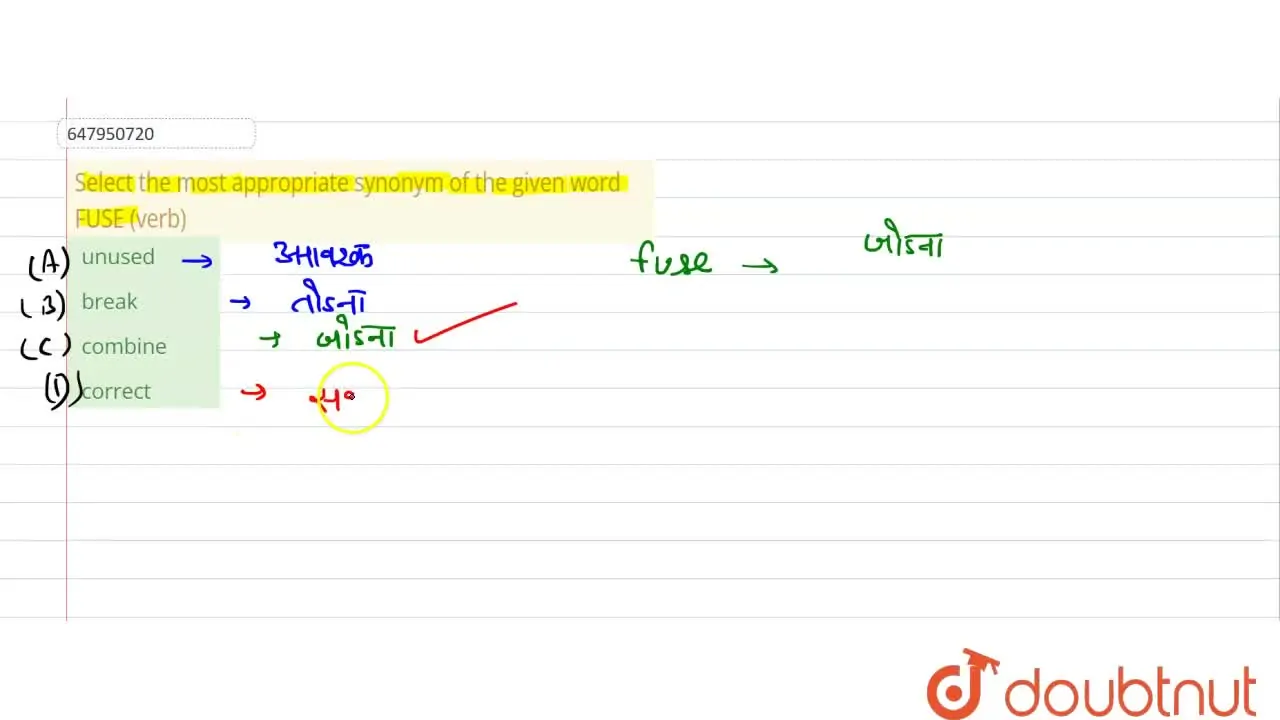 647950720
Select the most appropriate synonym of the given word
FUSE (verb)
(A) unused →
(B) break → तोडना
(C) combine → जोडना
(D) correct →
fuse → जोडना
doubtnut